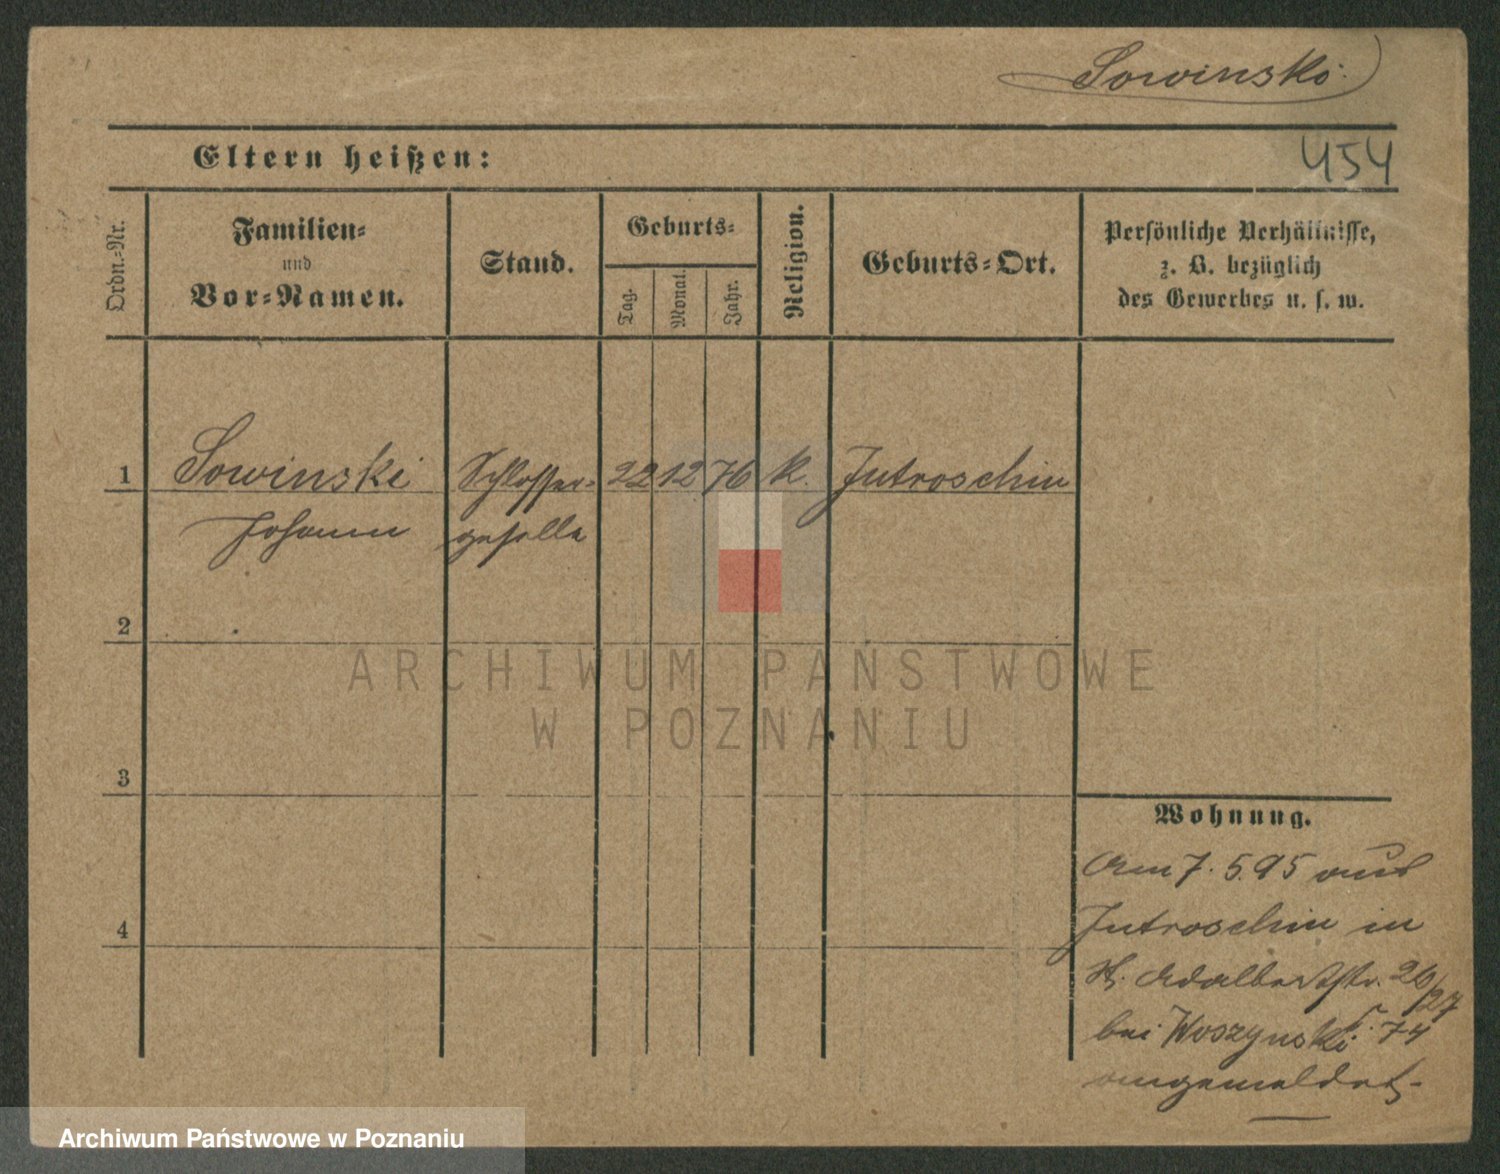 Sowinski
Eltern heißen:
454
Ordn.-Nr.
Familien-
und
Vor-Namen.
Stand.
Geburts-
Tag.
Monat.
Jahr.
Religion.
Geburts-Ort.
Persönliche Verhältnisse,
z. B. bezüglich
des Gewerbes u. s. w.
1 Sowinski Schlosser- 22 12 76 k. Jutroschin
Johann geselle
2
ARCHIWUM PAŃSTWOWE
W POZNANIU
3
4
Wohnung.
Am 7. 5. 95 aus
Jutroschin in
St. Adalbertstr. 26/27
bei Woszynski 74
angemeldet.
Archiwum Państwowe w Poznaniu